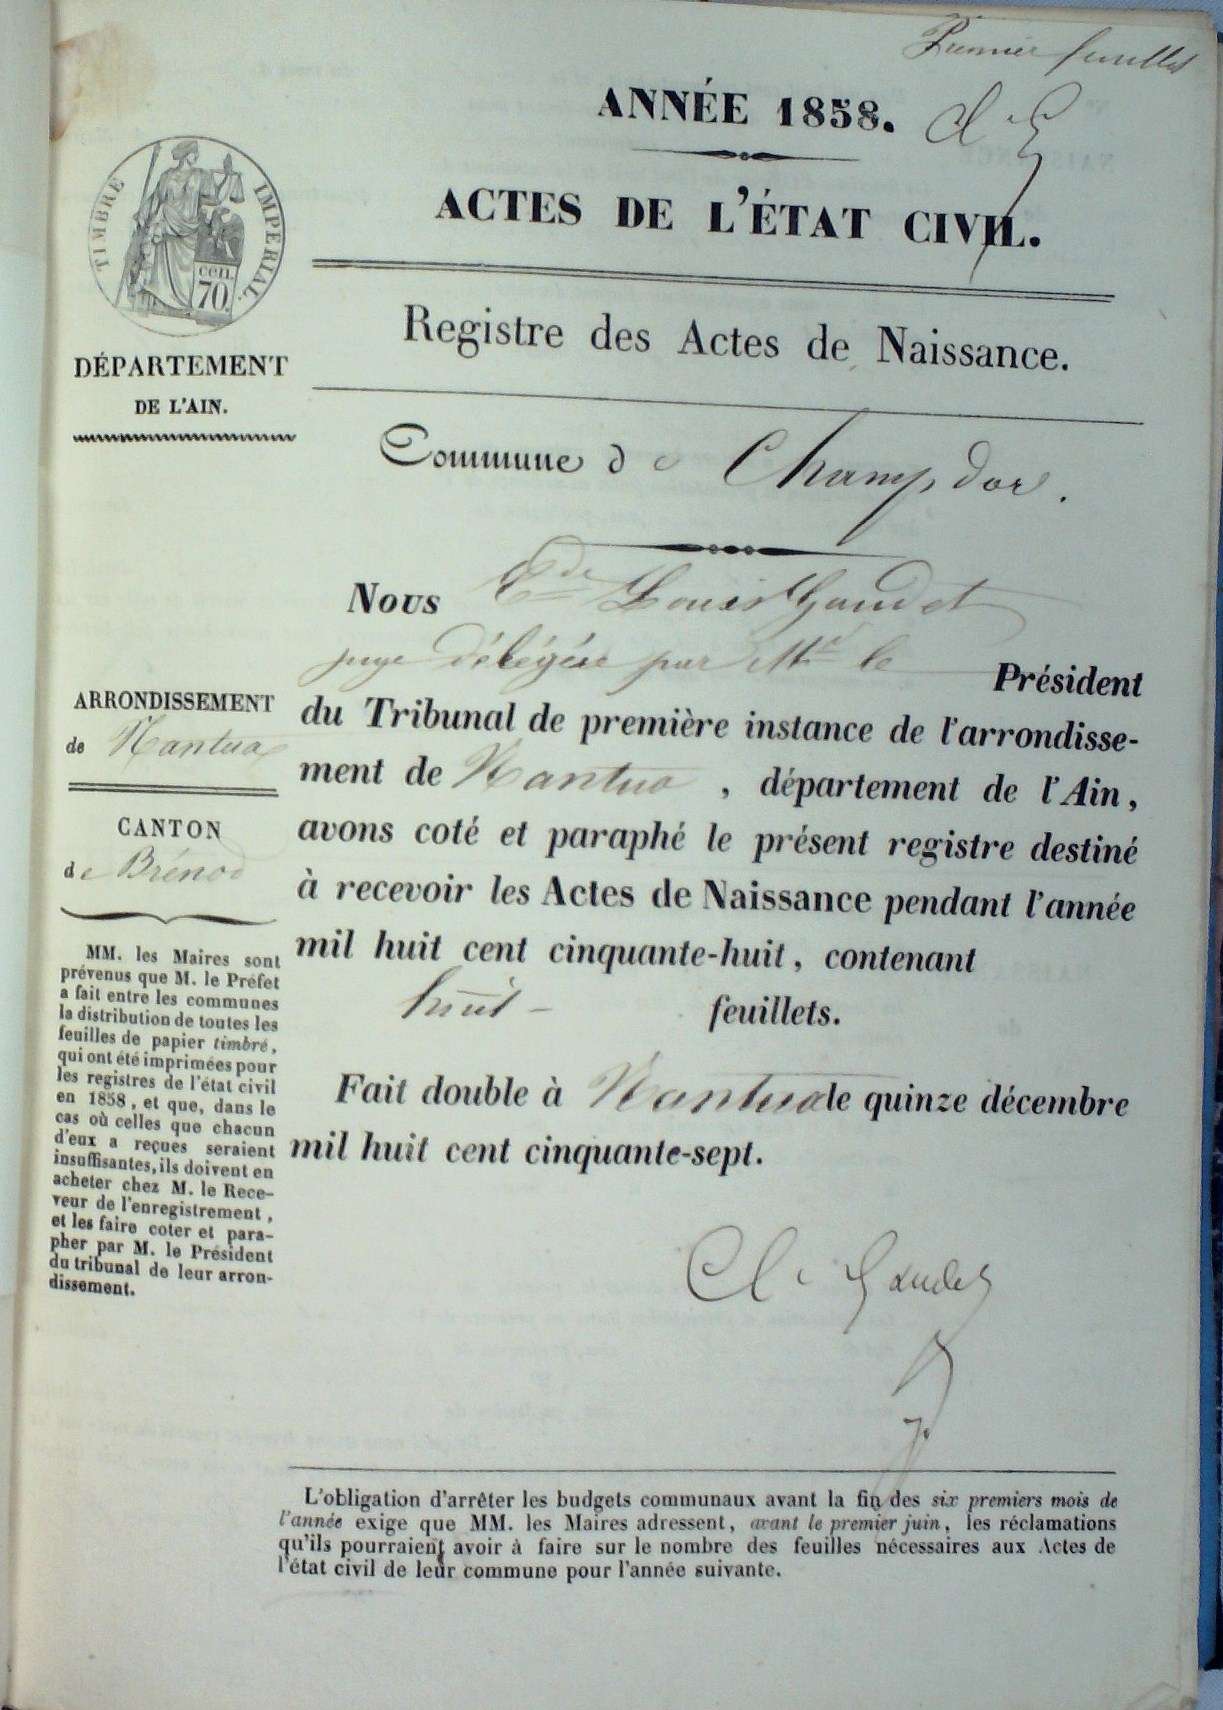 Premier feuillet
ANNÉE 1858.
ACTES DE L'ÉTAT CIVIL.
TIMBRE IMPERIAL.
cen.
70.
DÉPARTEMENT
DE L'AIN.
Registre des Actes de Naissance.
Commune de Champdor.
Nous Louis Gaudet
juge délégué par Mr le Président
du Tribunal de première instance de l'arrondisse-
ment de Nantua, département de l'Ain,
avons coté et paraphé le présent registre destiné
à recevoir les Actes de Naissance pendant l'année
mil huit cent cinquante-huit, contenant
huit feuillets.
Fait double à Nantua le quinze décembre
mil huit cent cinquante-sept.
Gaudet
ARRONDISSEMENT
de Nantua
CANTON
de Brénod
MM. les Maires sont
prévenus que M. le Préfet
a fait entre les communes
la distribution de toutes les
feuilles de papier timbré,
qui ont été imprimées pour
les registres de l'état civil
en 1858, et que, dans le
cas où celles que chacun
d'eux a reçues seraient
insuffisantes, ils doivent en
acheter chez M. le Rece-
veur de l'enregistrement,
et les faire coter et para-
pher par M. le Président
du tribunal de leur arron-
dissement.
L'obligation d'arrêter les budgets communaux avant la fin des six premiers mois de
l'année exige que MM. les Maires adressent, avant le premier juin, les réclamations
qu'ils pourraient avoir à faire sur le nombre des feuilles nécessaires aux Actes de
l'état civil de leur commune pour l'année suivante.